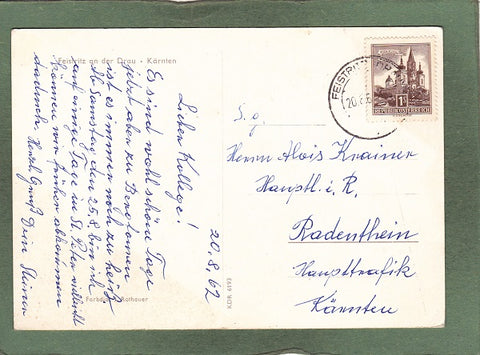 Feistritz an der Drau - Kärnten
20.8.62
Lieber Kollege!
Es sind wohl schöne Tage
jetzt aber zu Bergtouren
ist es immer noch zu heiß.
Ab Samstag den 25.8. bin ich
auf einige Tage in St. Peter vielleicht
können wir früher abkommen
dadurch. Herzl. Gruß Dein
Rothauer
K.Dr. 6193
FEISTRITZ
20.8.6
1S
REPUBLIK ÖSTERREICH
S. g.
Herrn Alois Krainer
Hauptl. i. R.
Radenthein
Haupttrafik
Kärnten